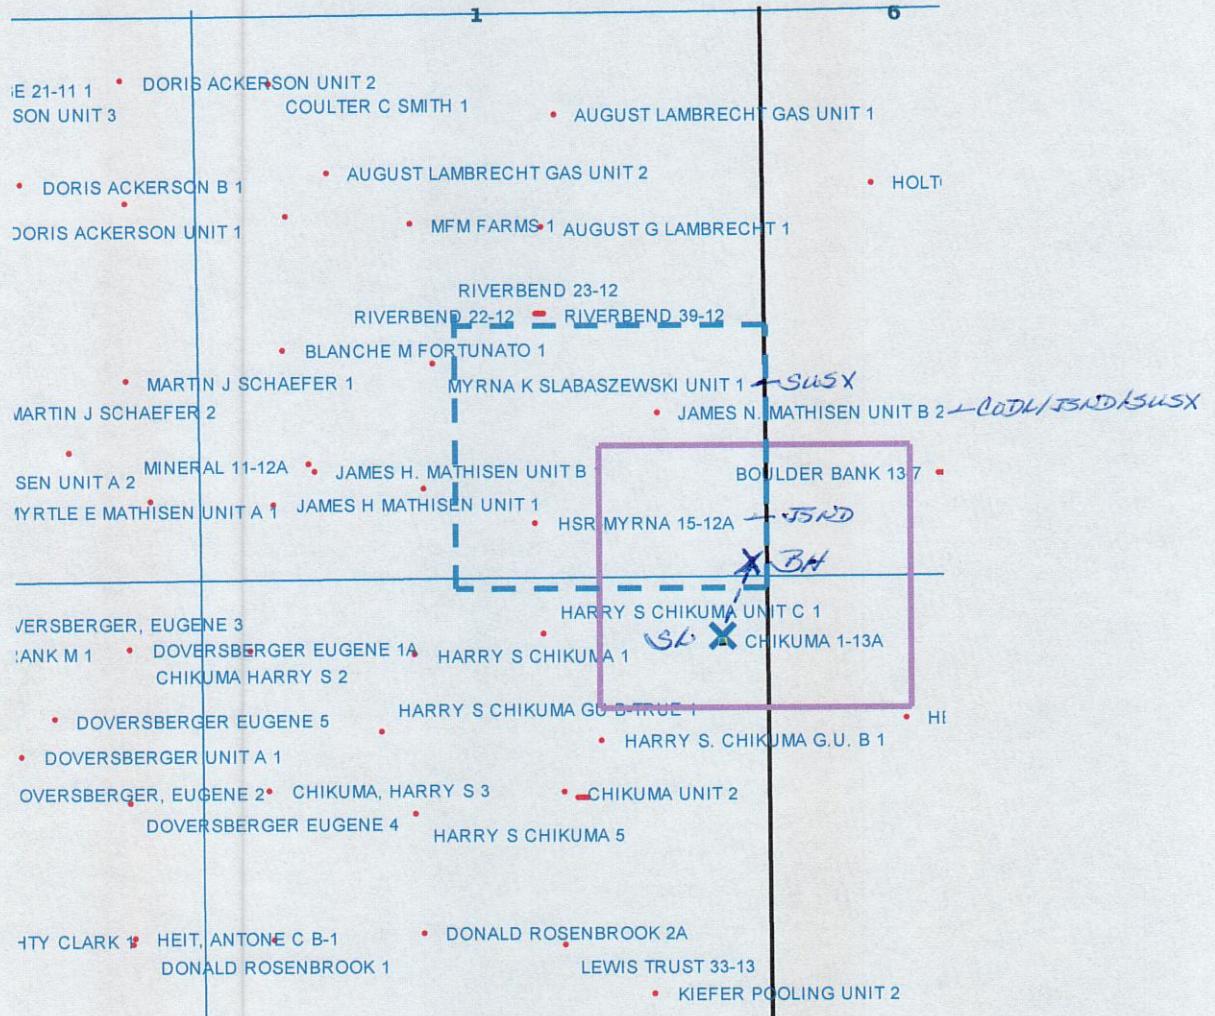 1
6
E 21-11 1
DORIS ACKERSON UNIT 2
SON UNIT 3
COULTER C SMITH 1
AUGUST LAMBRECHT GAS UNIT 1
AUGUST LAMBRECHT GAS UNIT 2
DORIS ACKERSON B 1
HOLT
DORIS ACKERSON UNIT 1
MFM FARMS 1
AUGUST G LAMBRECHT 1
RIVERBEND 23-12
RIVERBEND 22-12
RIVERBEND 39-12
BLANCHE M FORTUNATO 1
MARTIN J SCHAEFER 1
MYRNA K SLABASZEWSKI UNIT 1 - SUSX
MARTIN J SCHAEFER 2
JAMES N. MATHISEN UNIT B 2 - CODL/JSND/SUSX
MINERAL 11-12A
JAMES H. MATHISEN UNIT B
BOULDER BANK 13-7
SEN UNIT A 2
MYRTLE E MATHISEN UNIT A 1
JAMES H MATHISEN UNIT 1
HSR-MYRNA 15-12A - JSND
X BH
HARRY S CHIKUMA UNIT C 1
VERSBERGER, EUGENE 3
SL X CHIKUMA 1-13A
RANK M 1
DOVERSBERGER EUGENE 1A
HARRY S CHIKUMA 1
CHIKUMA HARRY S 2
HARRY S CHIKUMA GU B-TRUE 1
DOVERSBERGER EUGENE 5
HE
HARRY S. CHIKUMA G.U. B 1
DOVERSBERGER UNIT A 1
OVERSBERGER, EUGENE 2
CHIKUMA, HARRY S 3
CHIKUMA UNIT 2
DOVERSBERGER EUGENE 4
HARRY S CHIKUMA 5
HTY CLARK 1
HEIT, ANTONE C B-1
DONALD ROSENBROOK 2A
DONALD ROSENBROOK 1
LEWIS TRUST 33-13
KIEFER POOLING UNIT 2